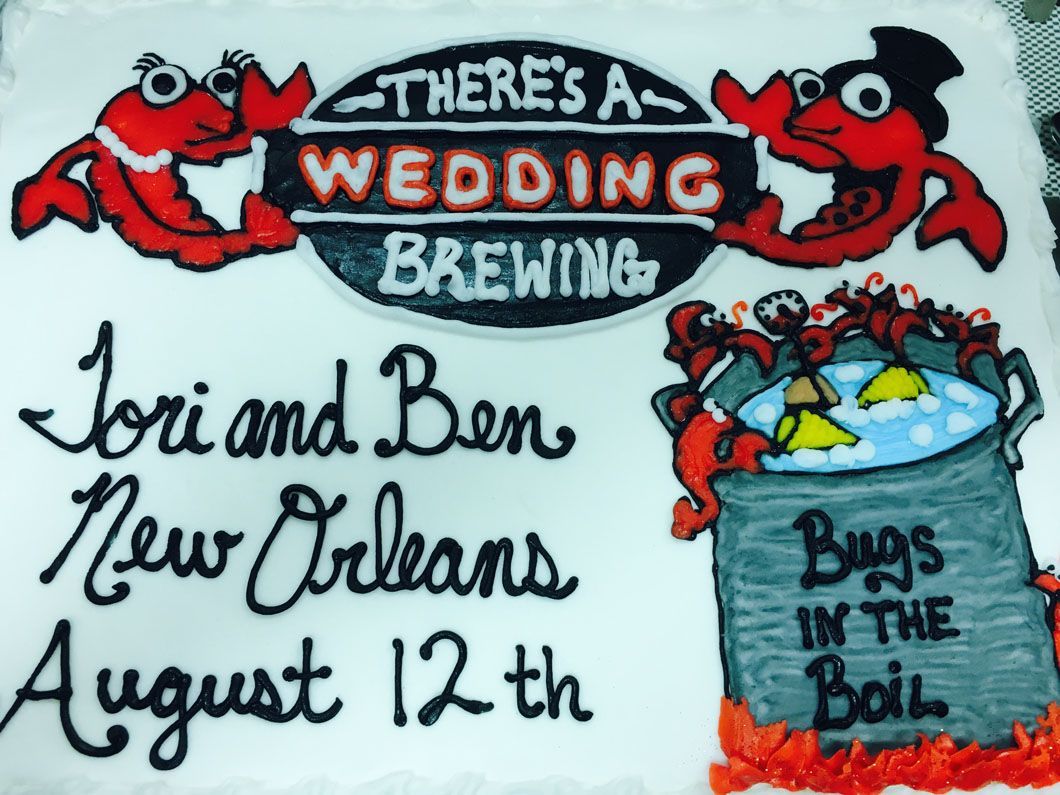 -THERE'S A-
WEDDING
BREWING
Tori and Ben
New Orleans
August 12th
Bugs
IN THE
BoiL